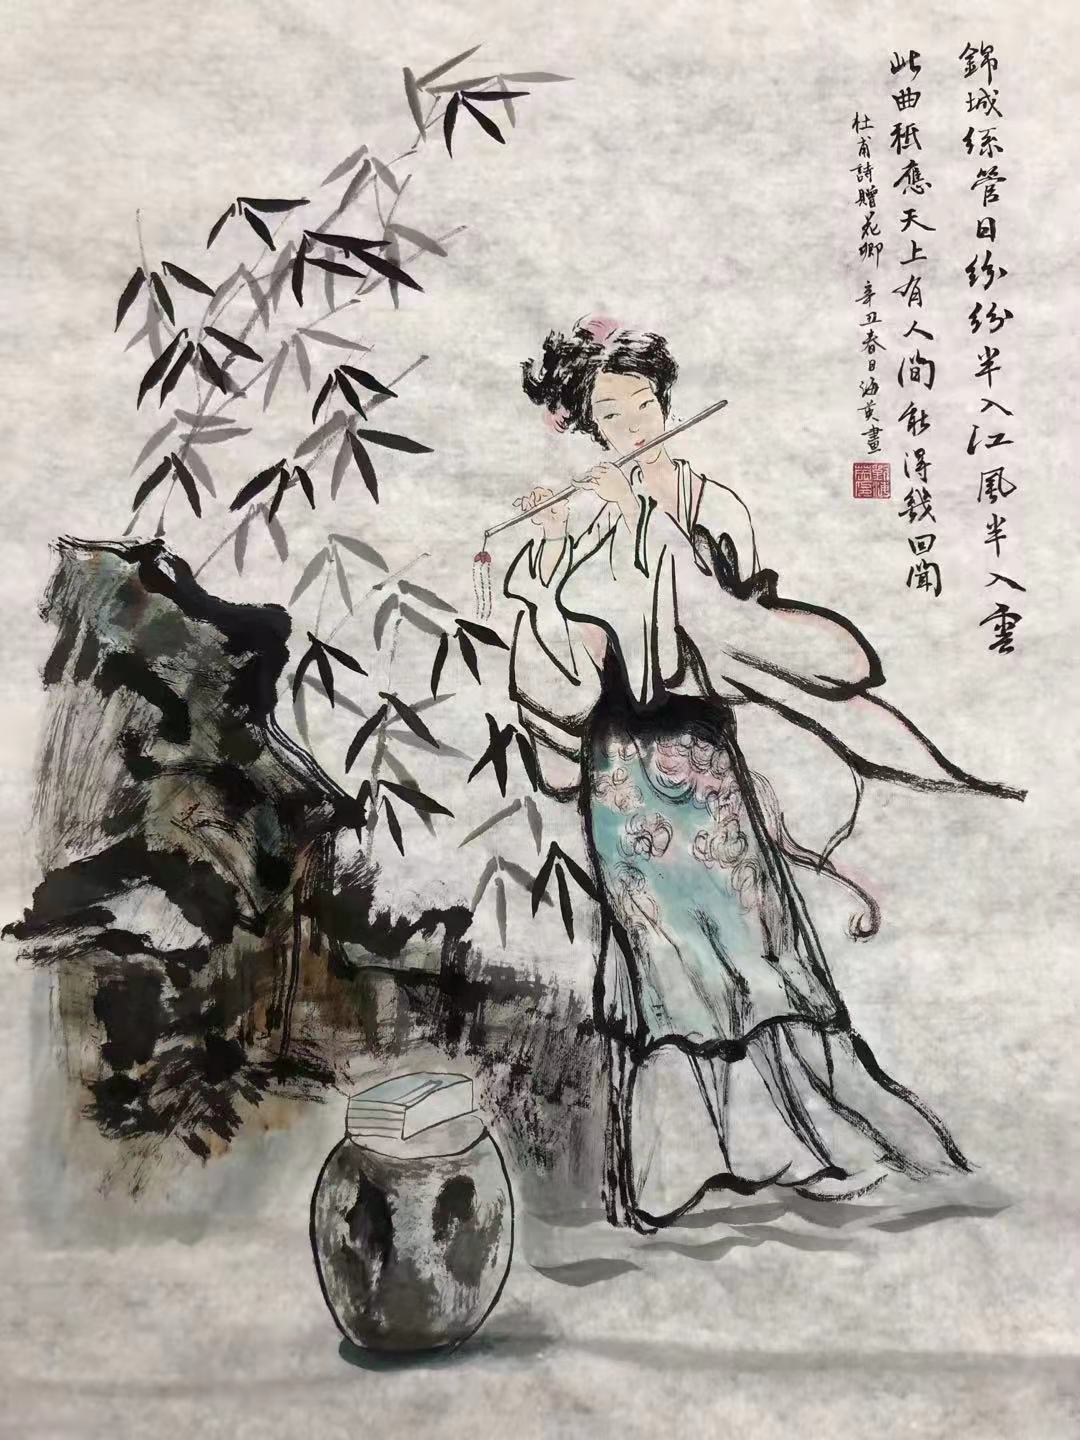 錦城絲管日紛紛半入江風半入雲
此曲秪應天上有人間能得幾回聞
杜甫詩贈花卿 辛丑春日海英畫